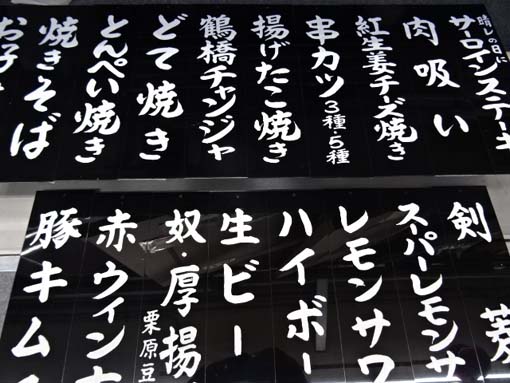 晴レの日に
サーロインステーキ
肉吸い
紅生姜チーズ焼き
串カツ 3種・5種
揚げたこ焼き
鶴橋チャンジャ
どて焼き
とんぺい焼き
焼きそば
お好
剣菱
スーパーレモンサ
レモンサワ
ハイボー
生ビー
奴・厚揚
栗原豆
赤ウィンナ
豚キム